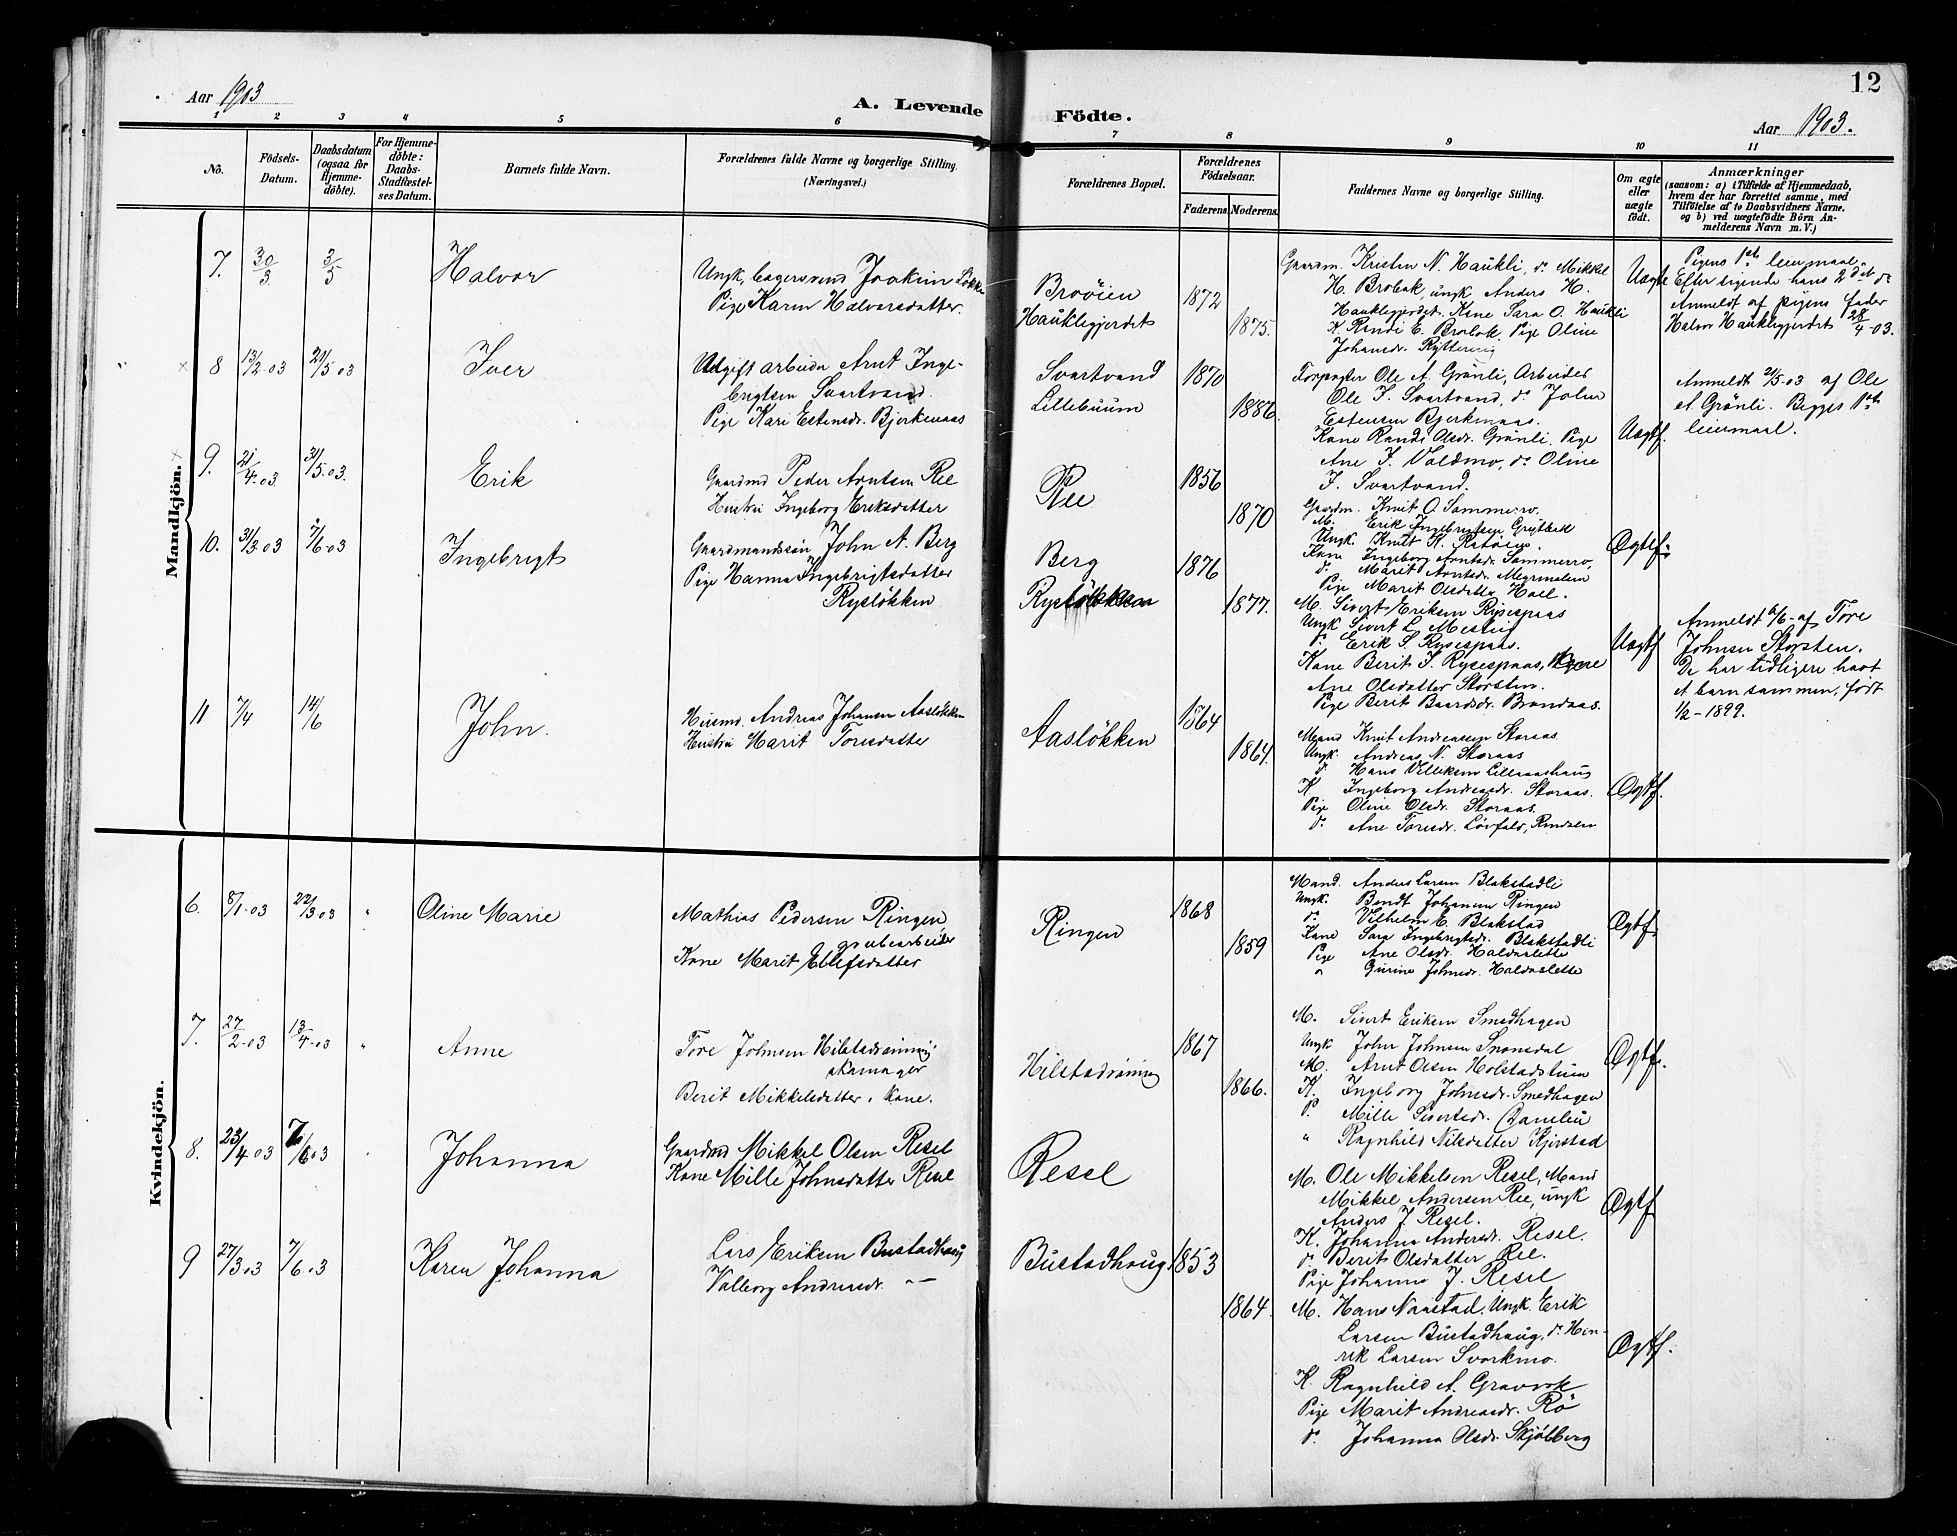 12
Aar 1903
A. Levende Födte.
Aar 1903.
1 2 3 4 5 6 7 8 9 10 11
No.
Födsels-
Datum.
Daabsdatum
(ogsaa for
Hjemme-
döbte).
For Hjemme-
döbte:
Daabs-
Stadfæstel-
ses Datum.
Barnets fulde Navn.
Forældrenes fulde Navne og borgerlige Stilling.
(Næringsvei.)
Forældrenes Bopæl.
Forældrenes
Födselsaar.
Faderens.
Moderens.
Faddernes Navne og borgerlige Stilling.
Om ægte
eller
uægte
födt.
Anmærkninger
(saasom: a) i Tilfælde af Hjemmedaab,
hvem der har forrettet samme, med
Tilföielse af to Daabsvidners Navne,
og b) ved uægtefödte Börn An-
melderens Navn m. V.)
Mandkjön.
7. 30/3 3/5 Halvor
Ungk, bagersvend Joakim Løkken
Pige Karen Halvorsdatter.
Broöien
Haukligjerdet
1872
1875.
Gaardm. Kristen N. Haukli, do Mikkel
H. Brobak, ungk Anders H.
Haukligjerdet. Kone Sara O. Haukli
K. Randi E. Brobak. Pige Oline
Johansdr. Ryttervig
Uægte
Pigens 1ste leiermaal
Efter sigende hans 2det do
Anmeldt af pigens fader
Halvor Haukligjerdet 28/4-03.
8 13/2-03 21/5-03 Iver
Ugift arbeider Arnt Inge-
brigtsen Svartvand.
Pige Kari Estensdr. Bjerkenaas
Svartvand
Lillebuum
1870
1886.
Forpagter Ole A. Grönli, Arbeider
Ole I. Svartvand, do John
Estensen Bjerkenaas.
Kone Randi Olsdr. Grönli. Pige
Ane I. Valdmo, do Oline
I. Svartvand.
Uægtf.
Anmeldt 21/5-03 af Ole
A. Grönli. Begges 1ste
leiermaal.
9. 21/4-03 31/5-03. Erik
Gaardmd Peder Arntsen Ree
Hustru Ingeborg Eriksdatter
Ree
1856
1870
Gaardm. Knut O. Sammervo.
M. Erik Ingebrigtsen Grytbak
Ungk. Knut K. Ratöien.
Kone Ingeborg Arntsdr. Sammervo,
do Marit Arntsdr. Megrunalein
Pige Marit Olsdatter Hoel.
Ægtef.
10. 31/3-03 7/6-03 Ingebrigt
Gaardmandssön John A. Berg
Pige Hanna Ingebrigtsdatter
Rysløkken
Berg
Rysløkken
1876
1877.
M. Sivert Eriksen Rysespaas
Ungk Sivert L. Mestrig
do Erik S. Rysespaas.
Kone Berit I. Rysespaas,
Ane Olsdatter Storsten.
Pige Berit Baardsdr. Brandaas.
Uægtf
Anmeldt 2/6-af Tore
Johnsen Storsten.
De har tidligere havt
et barn sammen, født
1/2-1899.
11 7/4 14/6 John.
Husmd. Andreas Johansen Aasløkken
Hustru Marit Toresdatter
Aasløkken
1864
1864.
Mand Knut Andreassen Storaas
Ungk. Andreas N. Storaas
do Hans Villiksen Lilleaashaug
K. Ingeborg Andreasdr. Storaas.
Pige Oline Olsdr. Storaas.
do Ane Toresdr. Løvfald, Rindalen
Ægtf.
Kvindekjön.
6. 8/1-03 22/3-03 " Oline Marie
Mathias Pedersen Ringen,
grubearbeider
Kone Marit Ellefsdatter
Ringen
1868
1859
Mand. Anders Larsen Blakstadli
Ungk. Bendt Johansen Ringen
do Vilhelm E. Blakstad
Kone Sara Ingebrigtsdr. Blakstadli
Pige Ane Olsdr. Haldaslette
" Gurine Johnsdr. Haldaslette
Ægtf.
7. 27/2-03 13/4-03 " Anne
Tore Johnsen Hilstadrönning
skomager
Berit Mikkelsdatter, Kone.
Hilstadrönning
1867
1866.
M. Sivert Eriksen Smedhagen
Ungk John Johnsen Snousdal
M. Arnt Olsen Holstadstuen
K. Ingeborg Johnsdr. Smedhagen
P. Mille Sivertsdr.
" Ragnhild Nilsdatter Kjørstad
Ægtf.
8. 23/4-03 7/6-03 Johanna
Gaardmd Mikkel Olsen Resel
Kone Mille Johnsdatter Resel
Resel
M. Ole Mikkelsen Resel, Mand
Mikkel Andersen Ree, ungk
Anders J. Resel.
K. Johanna Andersdr. Resel.
do Berit Olsdatter Ree.
Pige Johanna J. Resel
Ægtf.
9 27/3-03 7/6-03 Karen Johanna
Lars Eriksen Bustadhaug
Valborg Andreasdr. —
Bustadhaug
1853
1864.
M. Hans Naastad, Ungk. Erik
Larsen Bustadhaug, do Hen-
rik Larsen Svorkmo.
K. Ragnhild A. Gravrok
Pige Marit Andreasdr. Rö
do Johanna Olsdr. Skjölberg
Ægtf.